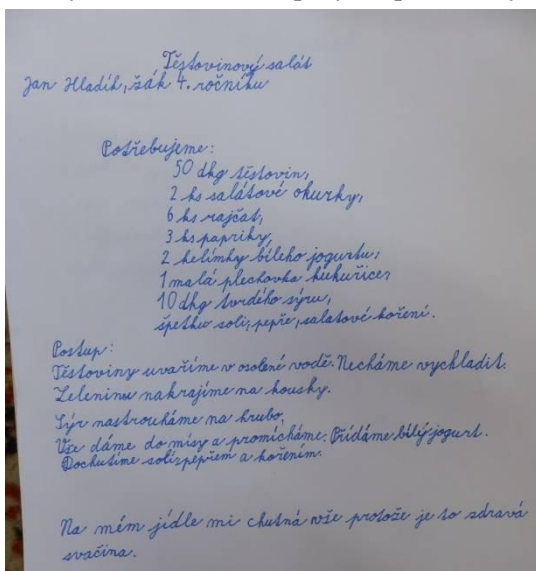 Těstovinový salát
Jan Hladík, žák 4. ročníku
Potřebujeme:
50 dkg těstovin,
2 ks salátové okurky,
6 ks rajčat,
3 ks papriky,
2 kelímky bíleho jogurtu,
1 malá plechovka kukuřice,
10 dkg tvrdého sýru,
špetku soli, pepře, salatové koření.
Postup:
Těstoviny uvaříme v osolené vodě. Necháme vychladit.
Zeleninu nakrajíme na kousky.
Sýr nastrouháme na hrubo,
Vše dáme do mísy a promícháme. Přidáme bílý jogurt.
Dochutíme solí, pepřem a kořením.
Na mém jídle mi chutná vše protože je to zdravá
svačina.